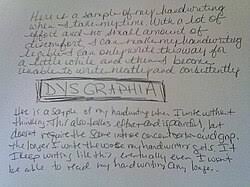 Here is a sample of my handwriting
when I take my time. With a lot of
effort and no small amount of
discomfort, I can make my handwriting
legible. I can only write this way for
a little while and then I become
unable to write neatly and consistently
DYSGRAPHIA
Here is a sample of my handwriting when I write without
thinking. This also takes effort and is painful but
doesn't require the same intense concentration and grip.
The longer I write the worse my handwriting gets. If
I keep writing like this, eventually even I won't
be able to read my handwriting any longer.